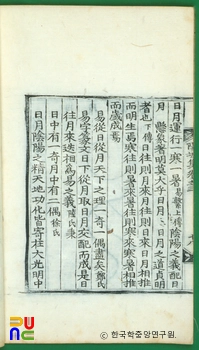 日月運行一寒一暑易繫上傳陰陽之義配日
月懸象著明莫大乎日月日月之道貞明
者也下傳日往則月來月往則日來日月相推
而明生焉寒往則暑來暑往則寒來寒暑相推
而歲成焉
易從日從月天下之理一奇一偶盡矣鄭氏
易字篆文日下從月取日月交配而成是日
往月來迭相爲易之義陸氏秉
日中有一奇月中有二偶徐氏
日月陰陽之精天地功化皆寄在大光明中
한국학중앙연구원.